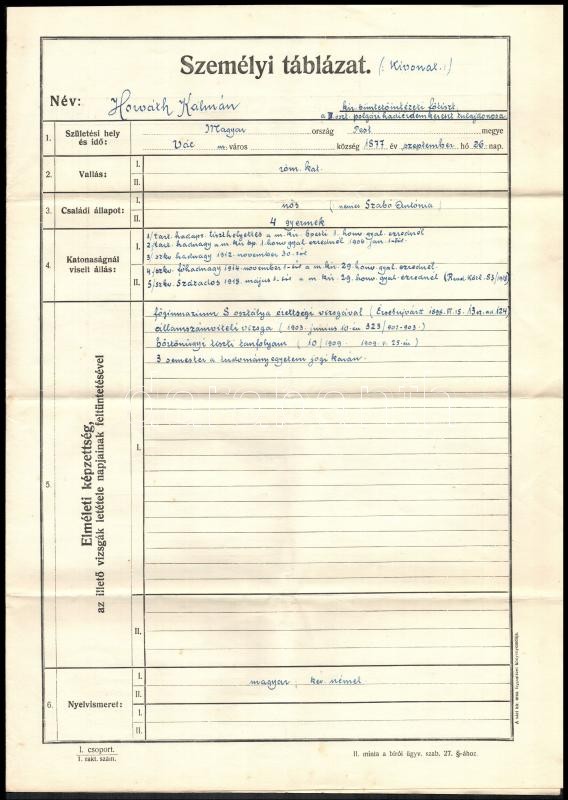 Személyi táblázat. (: Kivonat. :)
Név: Horváth Kálmán kir. büntetőintézeti főtiszt,
a II. oszt. polgári hadi érdemkereszt tulajdonosa
1. Születési hely és idő: Magyar ország Pest megye
Vác m. város község 1877 év szeptember hó 26. nap.
2. Vallás: I. róm. kat.
II.
3. Családi állapot: I. nős (: nemes Szabó Antónia)
II. 4 gyermek
4. Katonaságnál viselt állás: I. 1/ tart. hadapr. tiszthelyettes a m. kir. bpesti 1. honv. gyal. ezrednél
2/ tart. hadnagy a m. kir. bp. 1. honv. gyal. ezrednél 1906 jan. 1-től.
3/ szkv. hadnagy 1912. november 30.-tól
4/ szkv. főhadnagy 1914 november 1-től a m. kir. 29. honv. gyal. ezrednél.
II. 5/ szkv. Százados 1918. május 1-től a m. kir. 29. honv. gyal. ezrednél (Rend. Közl. 53/1918)
5. Elméleti képzettség,
az illető vizsgák letétele napjainak feltüntetésével
I. főgimnázium 8 osztálya érettségi vizsgával (Érsekujvárt 1896. VI. 15.
államszámviteli vizsga (1903. június 10-én 323/902-903.)
börtönügyi tiszti tanfolyam (10/1909. 1909. V. 25-én)
3 semester a tudományegyetem jogi karán.
II.
6. Nyelvismeret: I. magyar; kev. német.
II.
I.
II.
I. csoport.
1. rakt. szám.
II. minta a bírói ügyv. szab. 27. §-ához.